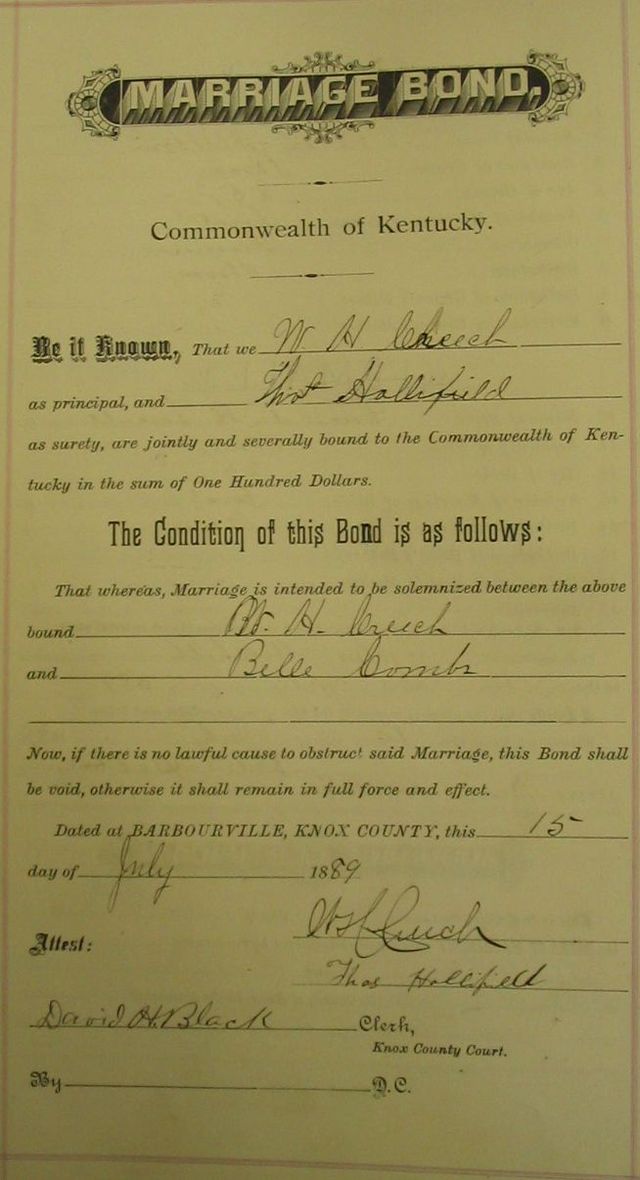 MARRIAGE BOND,
Commonwealth of Kentucky.
Be it Known, That we W H Creech
as principal, and Thos Hollifield
as surety, are jointly and severally bound to the Commonwealth of Ken-
tucky in the sum of One Hundred Dollars.
The Condition of this Bond is as follows:
That whereas, Marriage is intended to be solemnized between the above
bound W. H. Creech
and Belle Combs
Now, if there is no lawful cause to obstruct said Marriage, this Bond shall
be void, otherwise it shall remain in full force and effect.
Dated at BARBOURVILLE, KNOX COUNTY, this 15
day of July 1889
W H Creech
Attest:
Thos Hollifield
David H. Black Clerk,
Knox County Court.
By D.C.